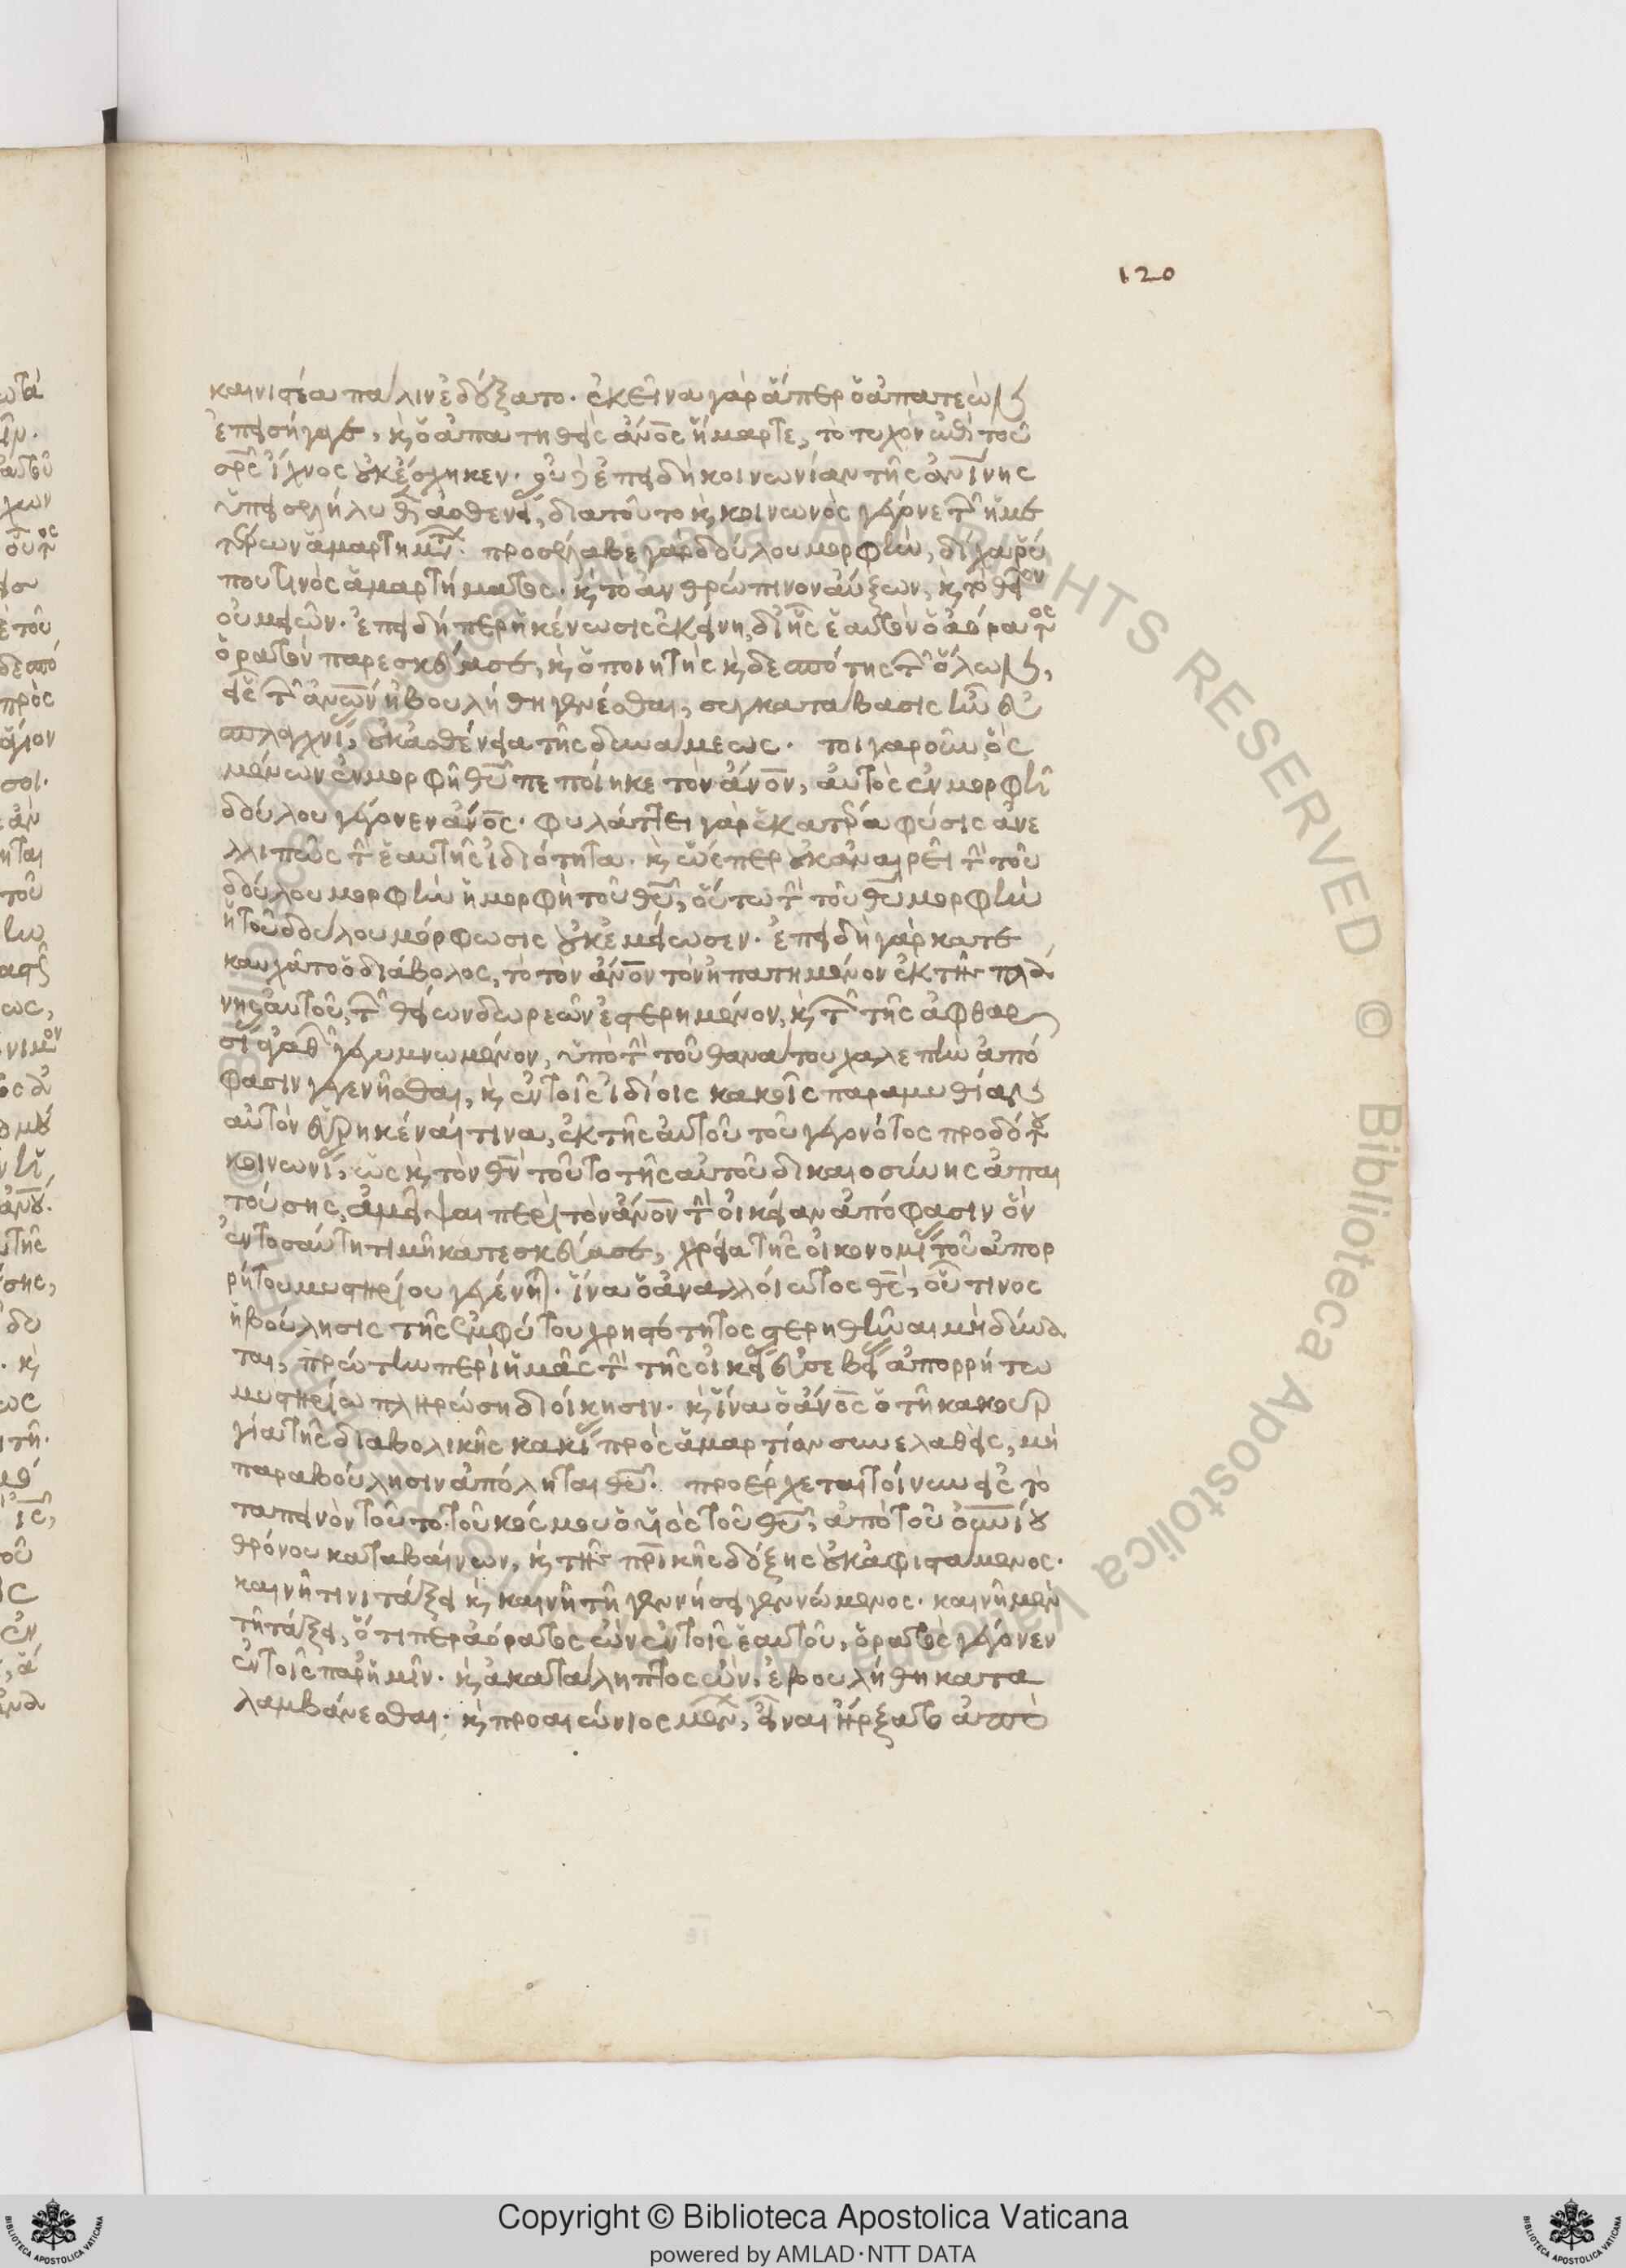 120
καινιστέα πάλιν ἐδέξατο. ἐκεῖνα γὰρ ἅπερ ὁ ἀπατεὼν
ἐπεισήγαγε, κ ὁ ἀπατηθεὶς ἀνος ἥμαρτε, τὸ τυχὸν ἐπὶ τοῦ
σρς ἴχνος οὐκ ἔσχηκεν. οὐδ ἐπειδὴ κοινωνίαν τῆς ἀνίνης
ὑπεισεληλυθεν ἀσθενείας, διατοῦτο κ κοινωνὸς γέγονε τῶν ἡμε
τέρων ἁμαρτημάτων. προσέλαβε γὰρ δούλου μορφὴν, δίχα ῥύ
που τινὸς ἁμαρτήματος. κ τὸ ἀνθρώπινον αὔξων, κ τὸ θεῖον
οὐ μειῶν. ἐπειδήπερ ἡ κένωσις ἐκείνη, δι ἧς ἑαυτὸν ὁ ἀόρατος
ὁρατὸν παρεσκεύασε, κ ὁ ποιητὴς κ δεσπότης τῶν ὅλων,
εἷς τῶν ἀνων ἠβουλήθη γενέσθαι, συγκατάβασις ἦν εὐ
σπλαγχνίας, οὐκ ἀσθένεια τῆς δυνάμεως. τοιγαροῦν, ὃς
μένων ἐν μορφῇ θυ πεποίηκε τὸν ἄνον, αὐτὸς ἐν μορφῇ
δούλου γέγονεν ἄνος. φυλάττει γὰρ ἑκατέρα φύσις ἀνε
λλιπῶς τὴν ἑαυτῆς ἰδιότητα. κ ὥσπερ οὐκ ἀναιρεῖ τὴν τοῦ
δούλου μορφὴν ἡ μορφὴ τοῦ θυ, οὕτω τὴν τοῦ θυ μορφὴν
ἡ τοῦ δούλου μόρφωσις οὐκ ἐμείωσεν. ἐπειδὴ γὰρ κατε
καυχᾶτο ὁ διάβολος, τὸ τὸν ἄνον τὸν ἠπατημένον ἐκ τῆς πλά
νης αὐτοῦ, τῶν θείων δωρεῶν ἐστερημένον, κ τῶν τῆς ἀφθαρ
σίας ἀγαθῶν γεγυμνωμένον, ὑπὸ τὴν τοῦ θανάτου χαλεπὴν ἀπό
φασιν γεγενῆσθαι, κ ἐν τοῖς ἰδίοις κακοῖς παραμυθίαν
αὐτὸν εὑρηκέναι τινα, ἐκ τῆς αὐτοῦ τοῦ γεγονότος προδότου
κοινωνίας, ὡς κ τὸν θν τοῦτο τῆς αὐτοῦ δικαιοσύνης ἀπαι
τούσης, ἀμεῖψαι περὶ τὸν ἄνον τὴν οἰκείαν ἀπόφασιν ὃν
ἐν τοσαύτῃ τιμῇ κατεσκεύασε, χρεία τῆς οἰκονομίας τοῦ ἀπορ
ρήτου μυστηρίου γεγένηται. ἵνα ὁ ἀναλλοίωτος θς, οὗτινος
ἡ βούλησις τῆς ἐμφύτου χρηστότητος στερηθῆναι μὴ δύνα
ται, πρώτην περὶ ἡμᾶς τὴν τῆς οἰκείας εὐσεβείας ἀπορρήτω
μυστηρίω πληρώσῃ διοίκησιν. κ ἵνα ὁ ἄνος ὁ τῇ κακουρ
γία τῆς διαβολικῆς κακίας πρὸς ἁμαρτίαν συνελαθεὶς, μὴ
παρὰ βούλησιν ἀπόληται θυ. προέρχεται τοίνυν εἰς τὸ
ταπεινὸν τοῦτο τοῦ κόσμου ὁ υἱὸς τοῦ θυ, ἀπὸ τοῦ οὐνίου
θρόνου καταβαίνων, κ τῆς πρικῆς δόξης οὐκ ἀφιστάμενος.
καινῇ τινι τάξει κ καινῇ τῇ γεννήσει γεννώμενος. καινῇ μὲν
τῇ τάξει, ὅτιπερ ἀόρατος ὢν ἐν τοῖς ἑαυτοῦ, ὁρατὸς γέγονεν
ἐν τοῖς παρ ἡμῖν. κ ἀκατάληπτος ὢν, ἐβουλήθη κατα
λαμβάνεσθαι. κ προαιώνιος μένων, εἶναι ἤρξατο ἀπὸ
Copyright © Biblioteca Apostolica Vaticana
powered by AMLAD·NTT DATA